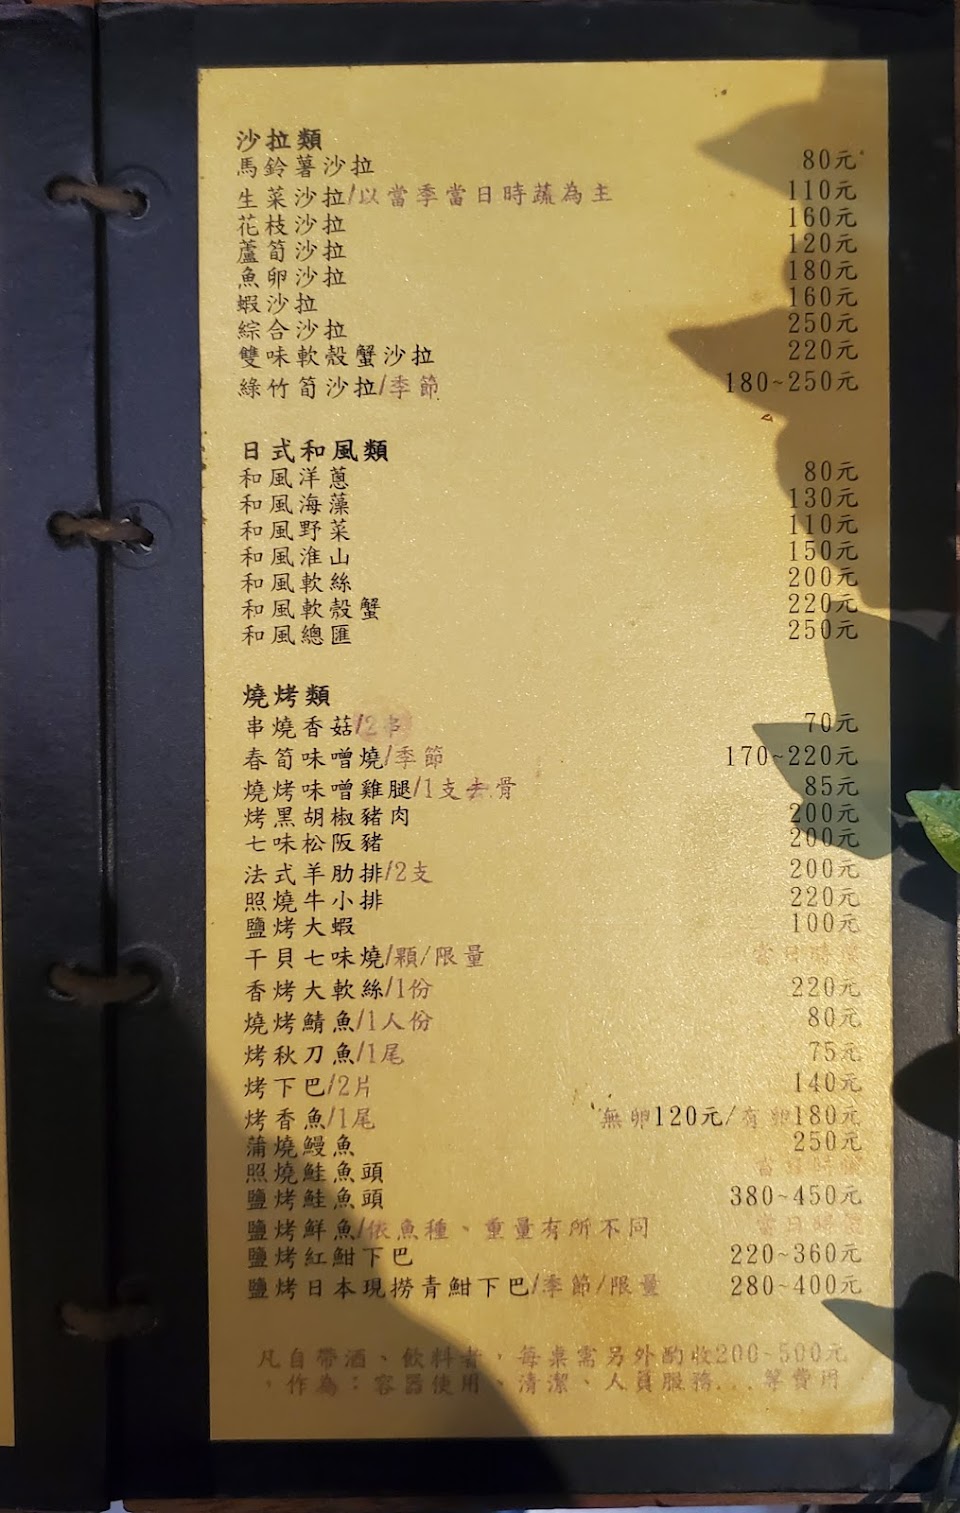 沙拉類
馬鈴薯沙拉 80元
生菜沙拉/以當季當日時蔬為主 110元
花枝沙拉 160元
蘆筍沙拉 120元
魚卵沙拉 180元
蝦沙拉 160元
綜合沙拉 250元
雙味軟殼蟹沙拉 220元
綠竹筍沙拉/季節 180~250元
日式和風類
和風洋蔥 80元
和風海藻 130元
和風野菜 110元
和風淮山 150元
和風軟絲 200元
和風軟殼蟹 220元
和風總匯 250元
燒烤類
串燒香菇/2串 70元
春筍味噌燒/季節 170~220元
燒烤味噌雞腿/1支去骨 85元
烤黑胡椒豬肉 200元
七味松阪豬 200元
法式羊肋排/2支 200元
照燒牛小排 220元
鹽烤大蝦 100元
干貝七味燒/顆/限量 當日時價
香烤大軟絲/1份 220元
燒烤鯖魚/1人份 80元
烤秋刀魚/1尾 75元
烤下巴/2片 140元
烤香魚/1尾 無卵120元/有卵180元
蒲燒鰻魚 250元
照燒鮭魚頭 當日時價
鹽烤鮭魚頭 380~450元
鹽烤鮮魚/依魚種、重量有所不同 當日時價
鹽烤紅魽下巴 220~360元
鹽烤日本現撈青魽下巴/季節/限量 280~400元
凡自帶酒、飲料者，每桌需另外酌收200~500元
，作為：容器使用、清潔、人員服務...等費用